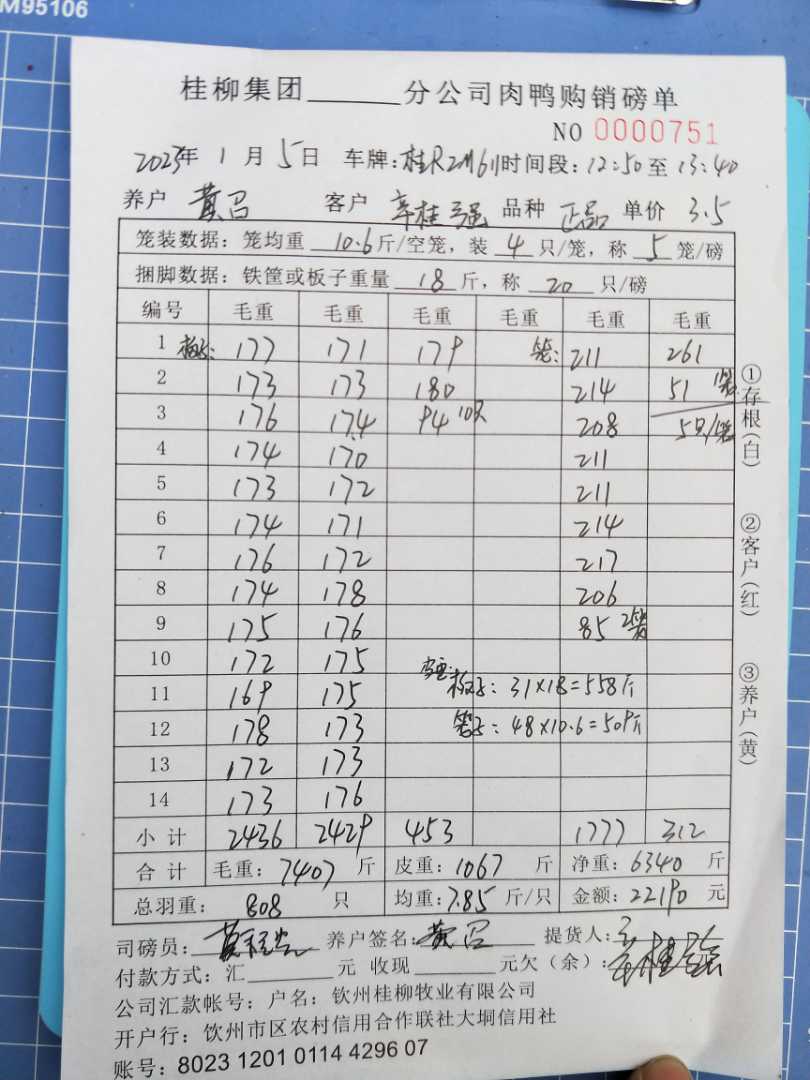 M95106
桂柳集团______分公司肉鸭购销磅单
NO 0000751
2023年 1月 5日 车牌:桂R2M611 时间段:12:50至13:40
养户 黄召 客户 辛桂强 品种 正品 单价 3.5
笼装数据:笼均重 10.6斤/空笼,装 4 只/笼,称 5 笼/磅
捆脚数据:铁筐或板子重量 18 斤,称 20 只/磅
编号 毛重 毛重 毛重 毛重 毛重 毛重
1 板子: 177 171 179 笼: 211 261
2 173 173 180 214 51 1笼
3 176 174 94 10只 208 5只/笼
4 174 170 211
5 173 172 211
6 174 171 214
7 176 172 217
8 174 178 206
9 175 176 85 2笼
10 172 175
11 169 175 板子: 31×18=558斤
12 178 173 笼子: 48×10.6=509斤
13 172 173
14 173 176
小计 2436 2429 453 1777 312
合计 毛重: 7407 斤 皮重: 1067 斤 净重: 6340 斤
总羽重: 808 只 均重: 7.85 斤/只 金额: 22190 元
司磅员: 养户签名: 黄召 提货人: 辛桂强
付款方式:汇______元 收现______元欠(余):
公司汇款帐号:户名:钦州桂柳牧业有限公司
开户行:饮州市区农村信用合作联社大垌信用社
账号:8023 1201 0114 4296 07
①存根(白)
②客户(红)
③养户(黄)